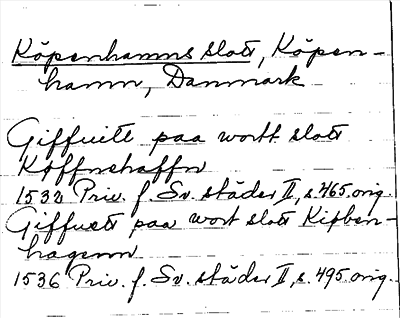 Köpenhamns slott, Köpen-
hamn, Danmark
Giffuett paa wortt slott
Køffnehaffn
1532 Priv. f. Sv. städer II, s. 465 orig.
Giffuett paa wort slott Kiøben-
hagenn
1536 Priv. f. Sv. städer II, s. 495 orig.